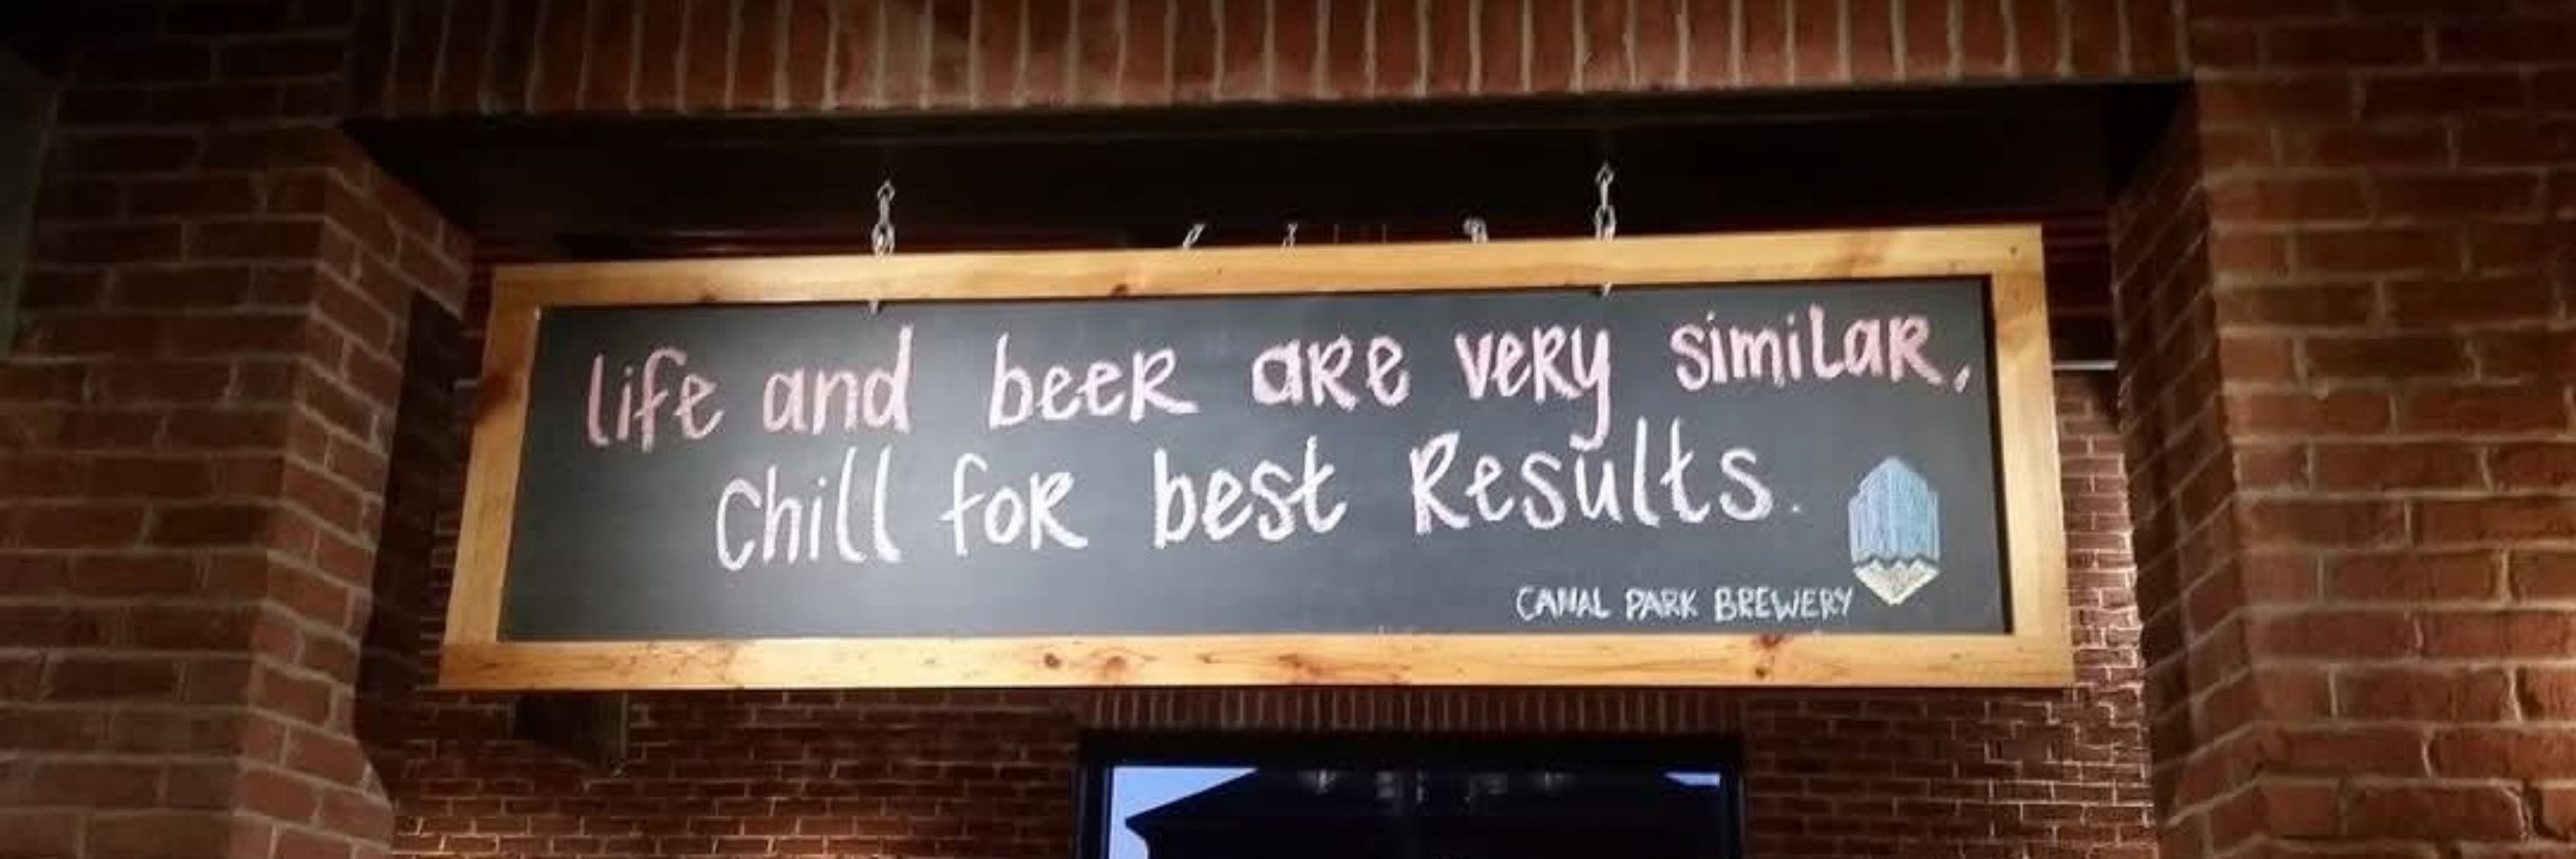 life and beer are very similar,
Chill for best Results.
CANAL PARK BREWERY